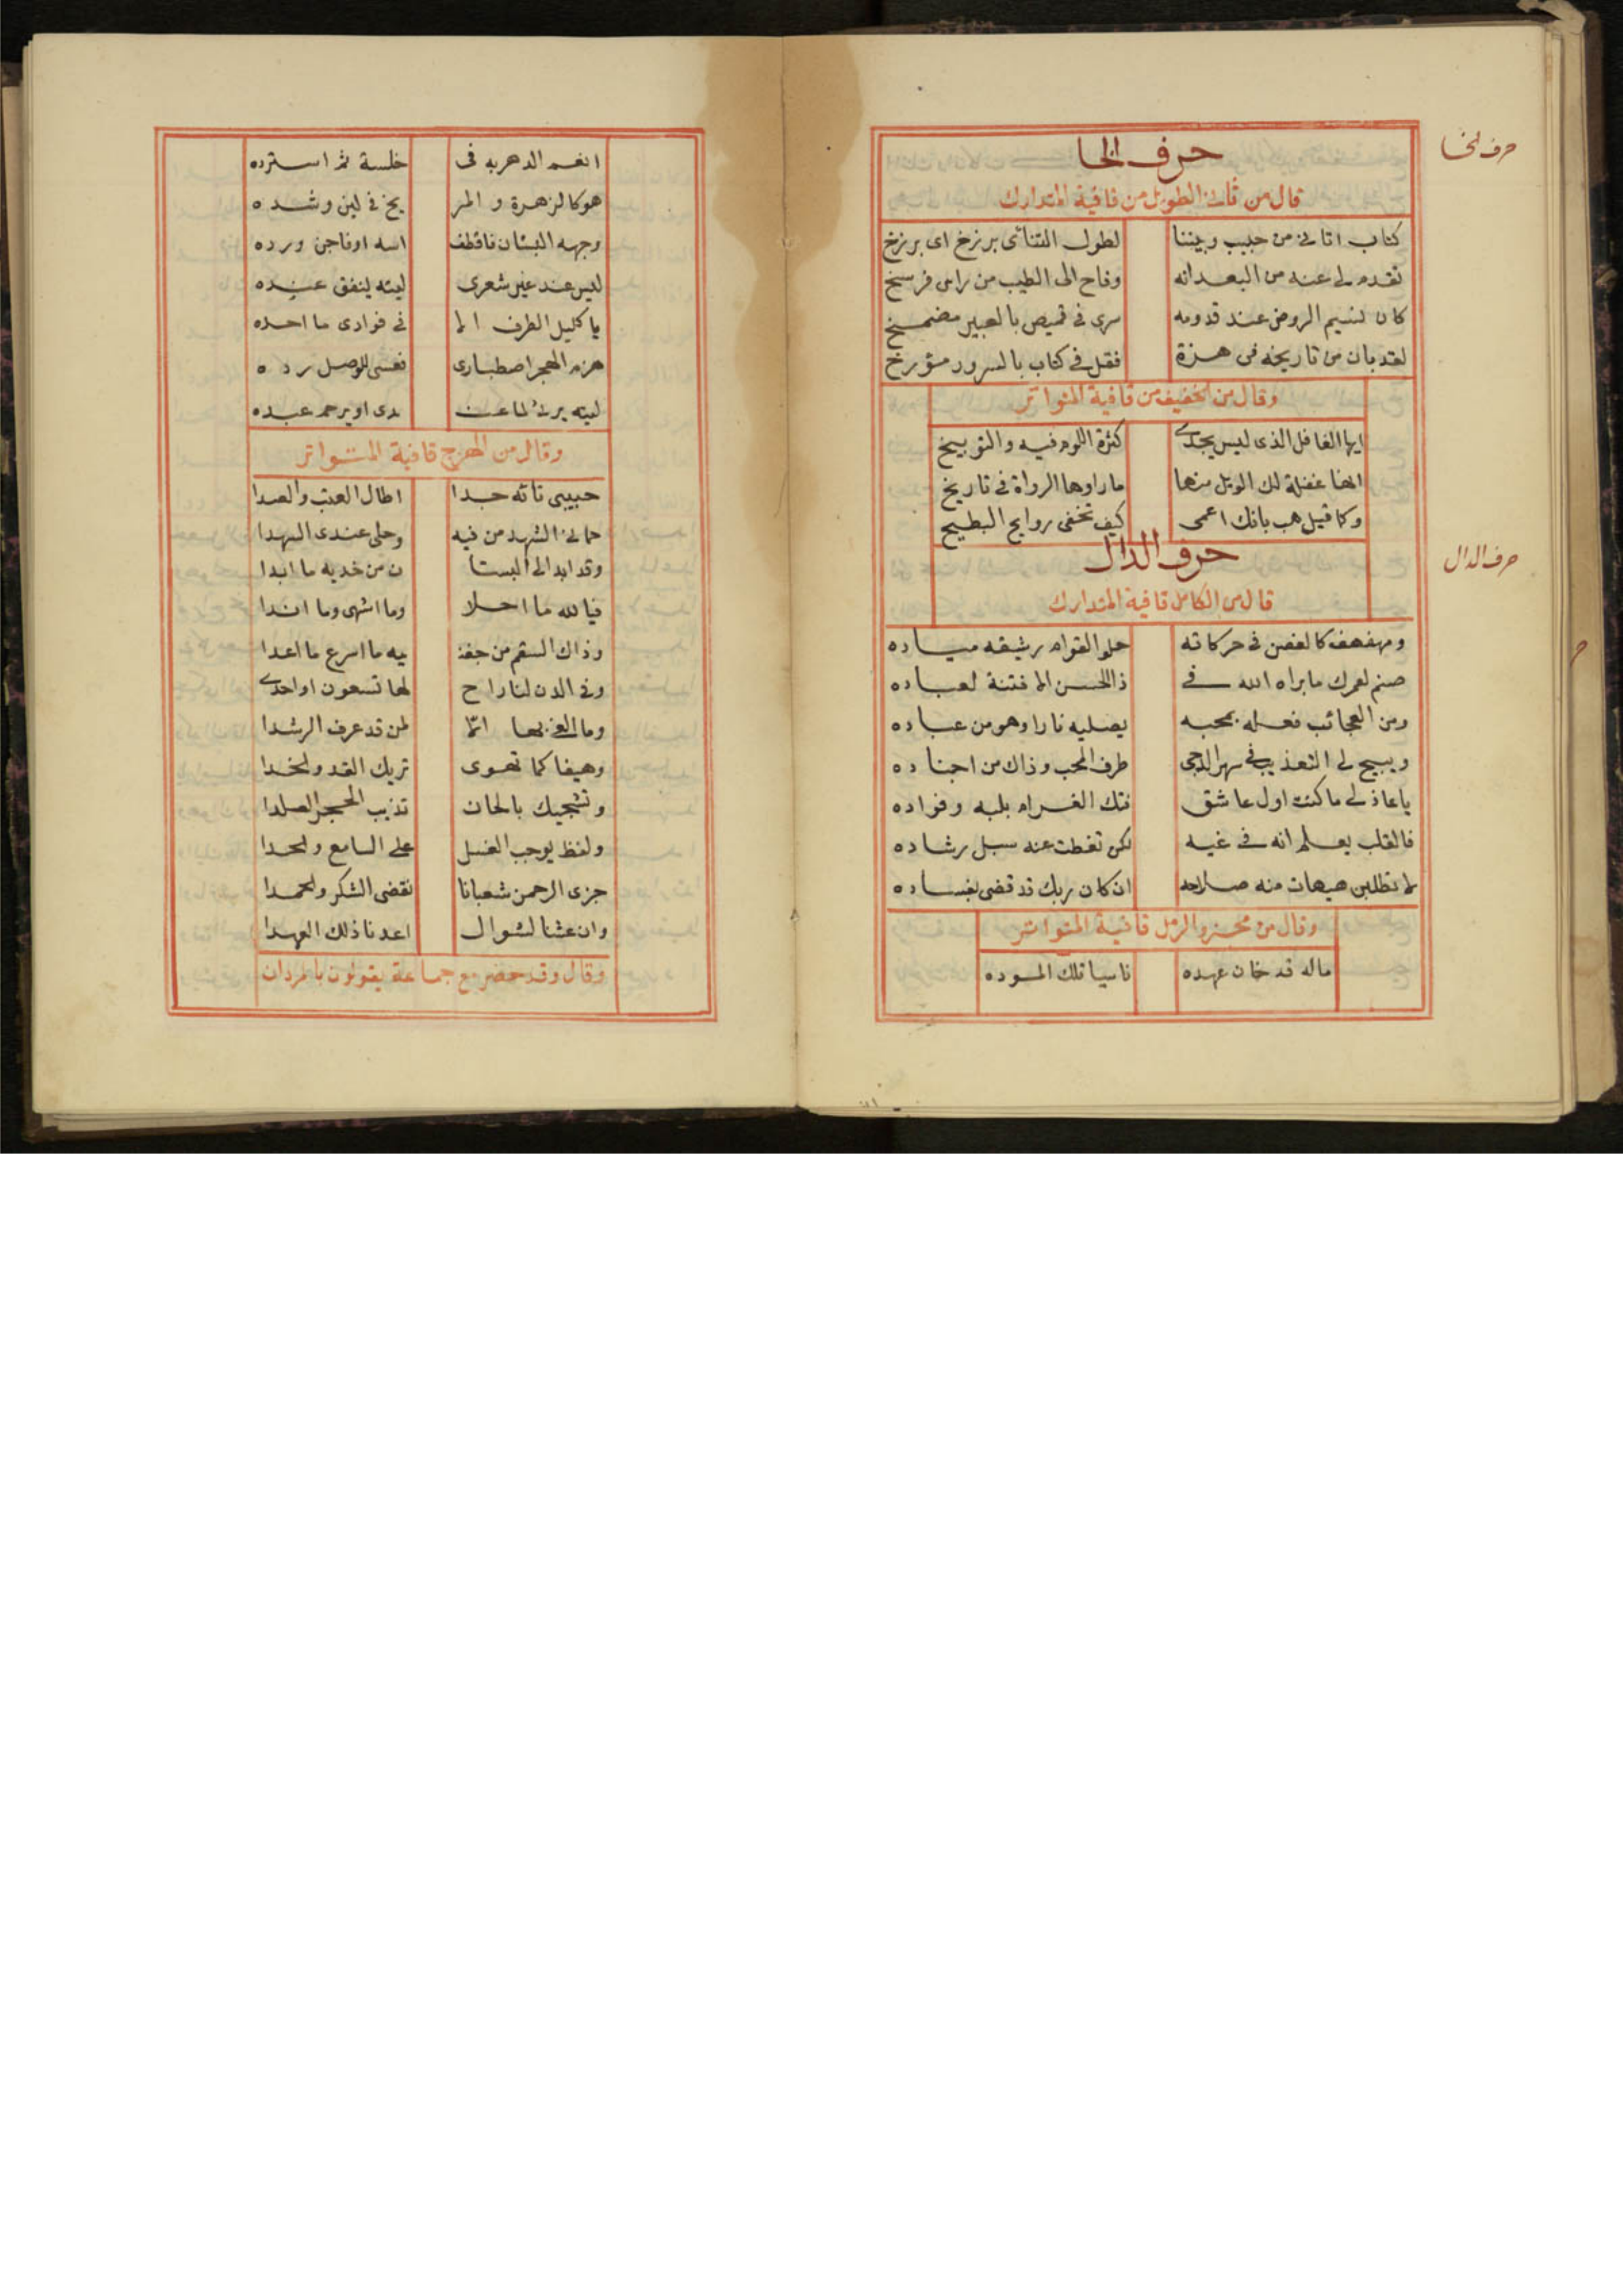 حرف الخا
حرف الخا
قال من ثانى الطويل من قافية المتدارك
كتاب اتانى من حبيب وبيننا لطول التنائى برزخ اى برزخ
تقدم لى عنه من البعد انه وفاح الى الطيب من راس فرسخ
كان نسيم الروض عند قدومه سرى فى قميص بالعبير مضمخ
لقد بان من تاريخه فى هزة فقل فى كتاب بالسرور مؤرخ
وقال من الخفيف من قافية المتواتر
ايها الغافل الذى ليس يجدى كثرة اللوم فيه والتوبيخ
انها غفلة لك الويل منها ما راوها الرواة فى تاريخ
وكما قيل هب بانك اعمى كيف تخفى روايح البطيح
حرف الدال
حرف الدال
قال من الكامل قافية المتدارك
ومهفهف كالغصن فى حركاته حلو القوام رشيقه مياده
صنم لعمرك ما براه الله فى ذا الحسن الا فتنة لعباده
ومن العجائب فعله بمحبه يصليه نارا وهو من عباده
ويبيح لى التعذيب فى سهر الدجى طرف المحب وذاك من اجناده
يا عاذلى ما كنت اول عاشق فتك الغرام بلبه وفواده
فالقلب يعلم انه فى غيه لكن تغطت عنه سبل رشاده
لا تطلبن هيهات منه صلاحه ان كان ربك قد قضى بفساده
وقال من مجزو الرمل قافية المتواتر
ماله قد خان عهده ناسيا تلك الموده
انعم الدهر به فى خلسة ثم استرده
هو كالزهرة و المر يخ فى لين وشده
وجهه البستان فاقطف اسه اوفاجن ورده
ليس عند غير شعرى ليته ينفق عنده
يا كليل الطرف الا فى فوادى ما احده
هزم الهجر اصطبارى فعسى للوصل رده
ليته يرثى لما عن دى او يرحم عبده
وقال من الهزج قافية المتواتر
حبيبى تائه جدا اطال العتب والصدا
حمانى الشهد من فيه وحلى عندى السهدا
وقد ابد الى البستا ن من خديه ما ابدا
فيا لله ما احلا وما اشهى وما اندا
وذاك السقم من جفنـ يه ما اسرع ما اعدا
وفى الدن لنا راح لها تسعون او احدى
وما الغى بها الا لمن قد عرف الرشدا
وهيفا كما تهوى تريك القد والخدا
وتشجيك بالحان تذيب الحجر الصلدا
ولفظ يوجب الغسل على السامع والحدا
جزى الرحمن شعبانا نقضى الشكر والحمدا
وان عشنا لشوال اعدنا ذلك العهدا
وقال وقد حضر مع جماعة يقولون بالمردان